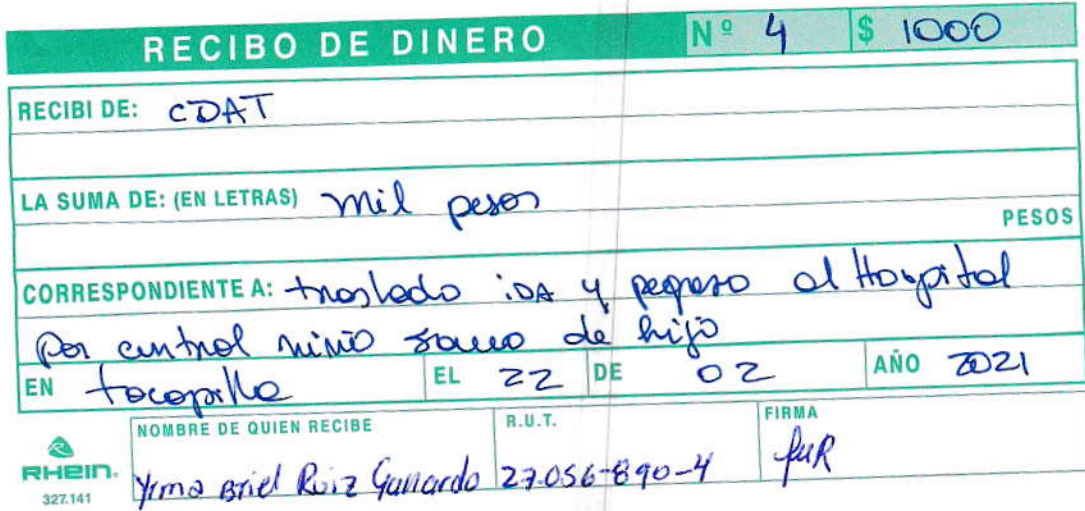 RECIBO DE DINERO Nº 4 $ 1000
RECIBI DE: CDAT
LA SUMA DE: (EN LETRAS) mil pesos
PESOS
CORRESPONDIENTE A: traslado iDA y regreso al Hospital
Por control niño sano de hijo
EN tocopilla EL 22 DE 02 AÑO 2021
NOMBRE DE QUIEN RECIBE R.U.T. FIRMA
Yrma Briel Ruiz 27.056-890-4
RHein.
327.141